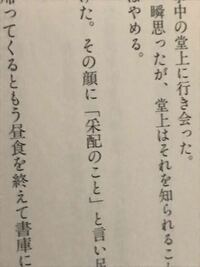 中の堂上に行き会った。
瞬思ったが、堂上はそれを知られるこ
はやめる。
けた。その顔に「采配のこと」と言い足
帰ってくるともう昼食を終えて書庫に